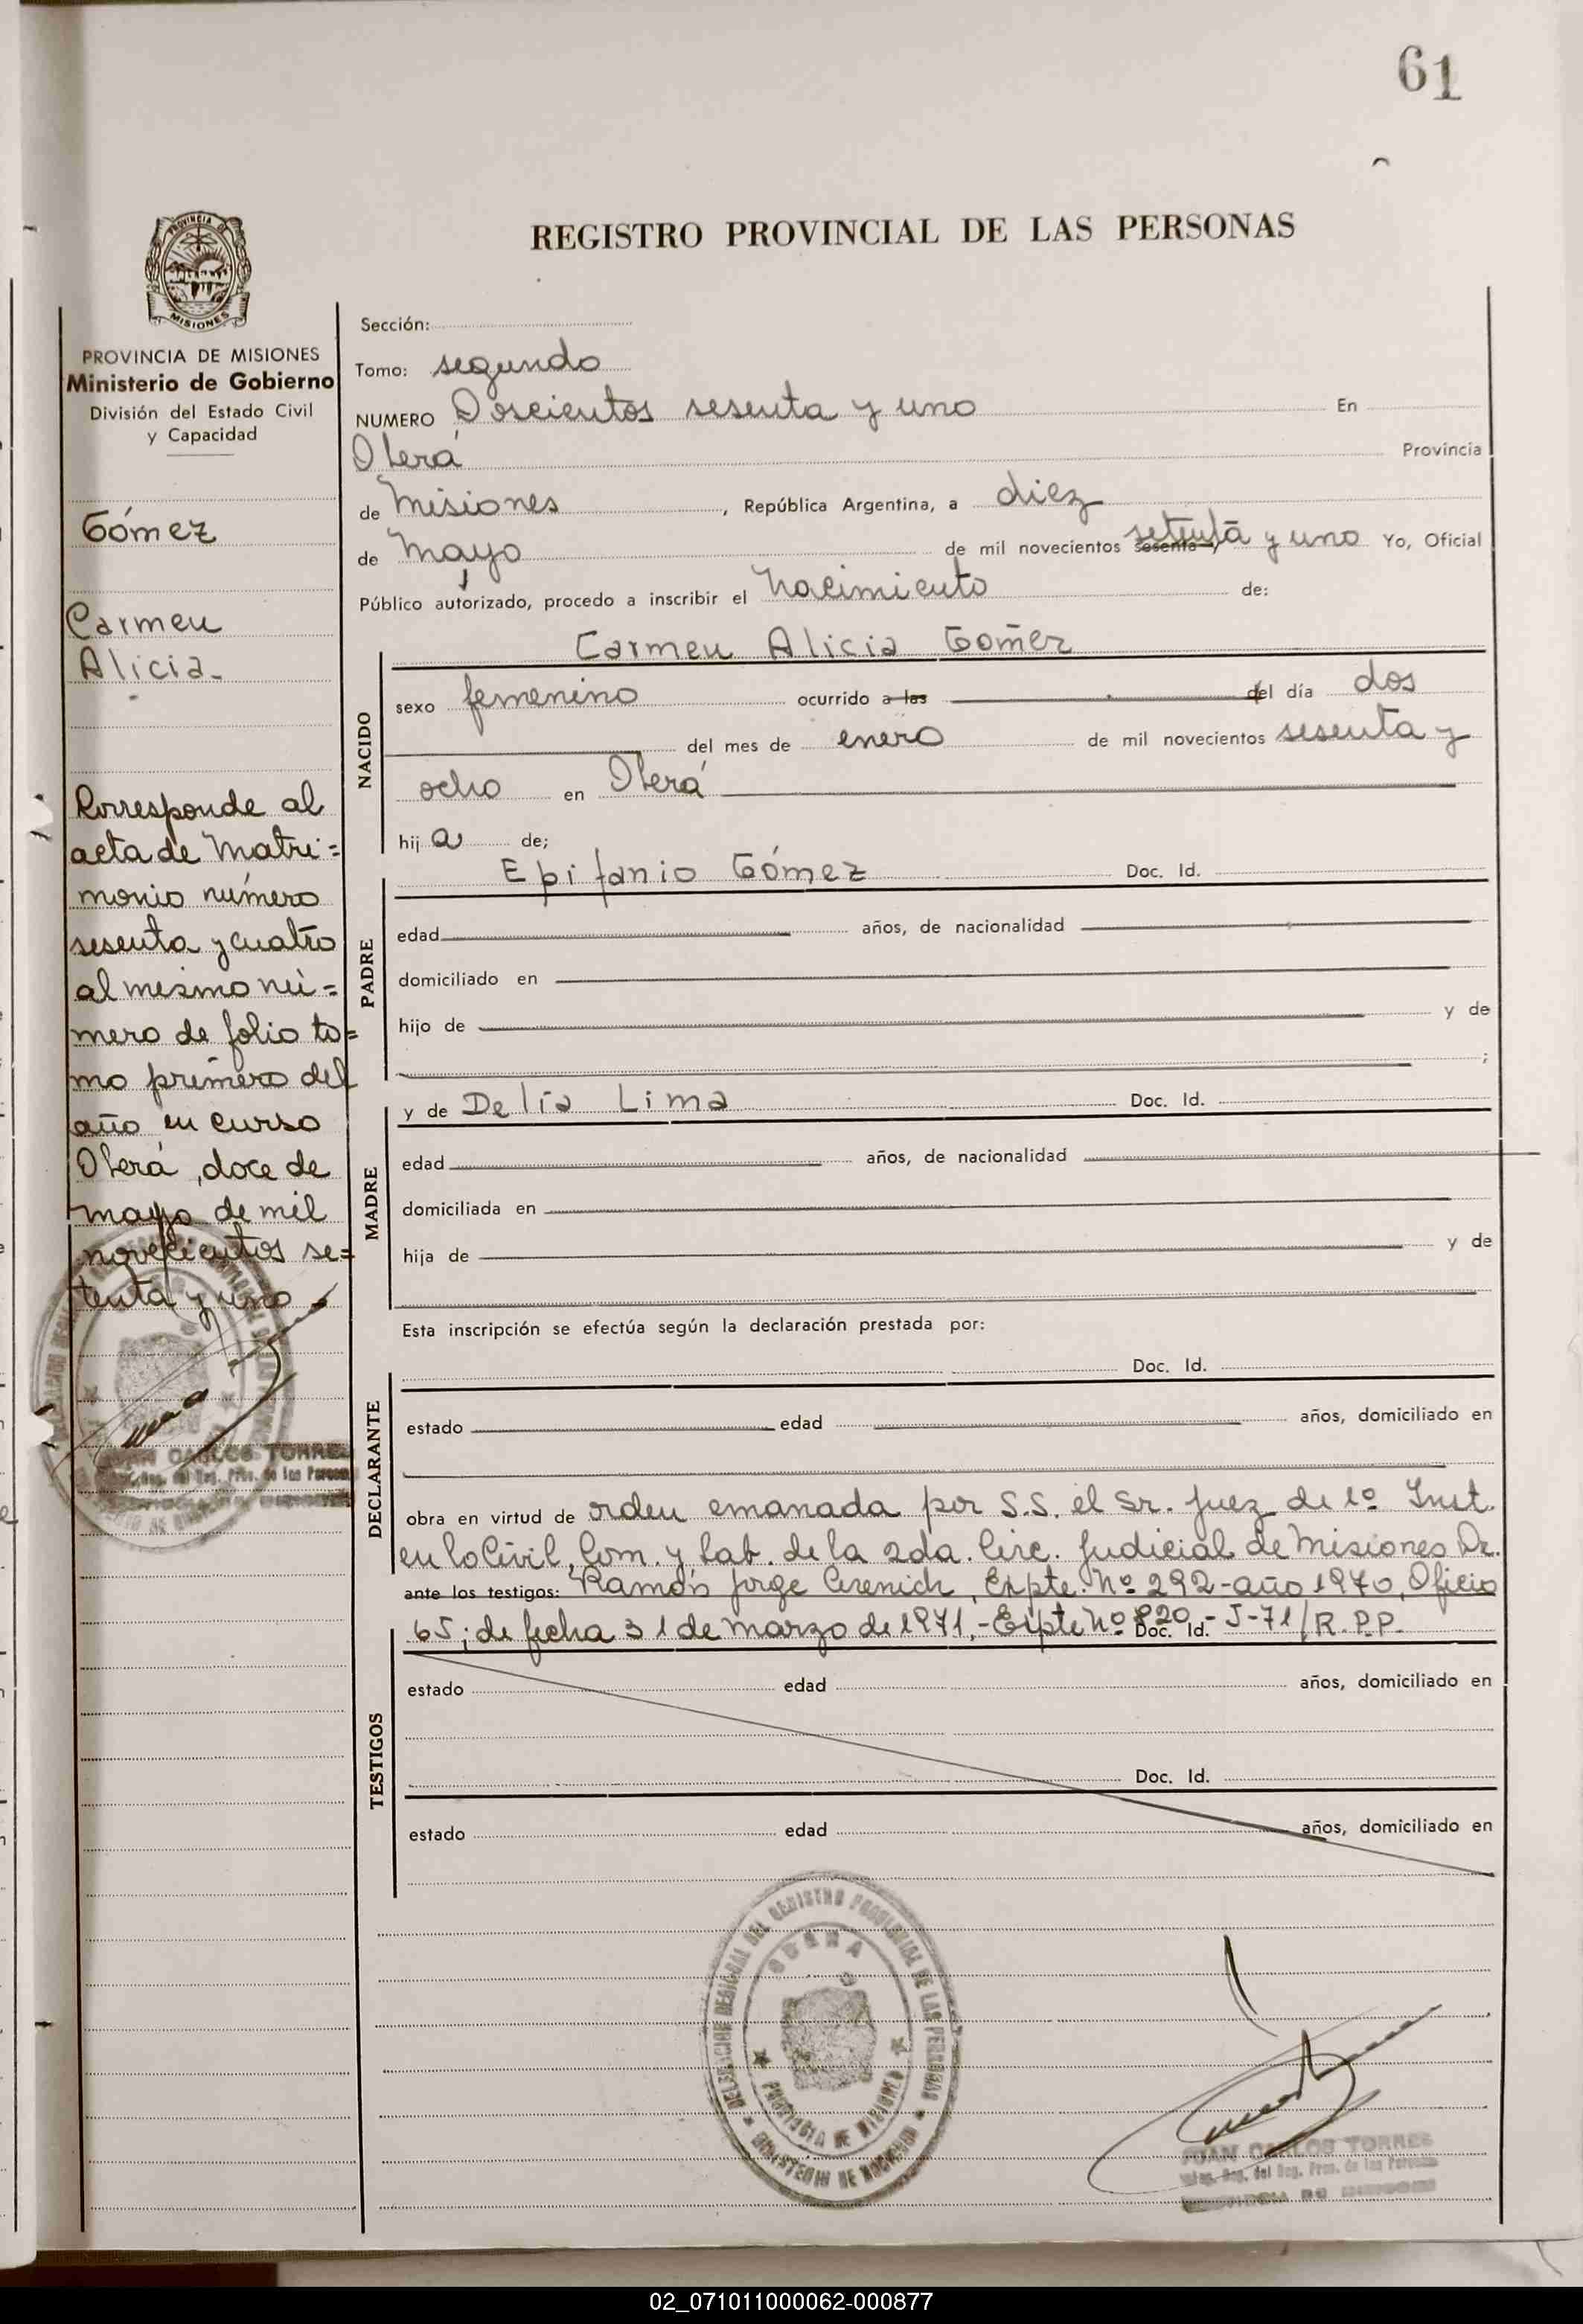 61
REGISTRO PROVINCIAL DE LAS PERSONAS
MISIONES
PROVINCIA DE MISIONES
Ministerio de Gobierno
División del Estado Civil
y Capacidad
Gómez
Carmen
Alicia.
Corresponde al
acta de Matri=
monio número
sesenta y cuatro
al mismo nú=
mero de folio to=
mo primero del
año en curso
Oberá, doce de
mayo de mil
novecientos se=
tenta y uno
JUAN CARLOS TORRES
Sección:
Tomo: segundo
NUMERO Doscientos sesenta y uno En
Oberá Provincia
de Misiones, República Argentina, a diez
de Mayo de mil novecientos sesenta setenta y uno Yo, Oficial
Público autorizado, procedo a inscribir el Nacimiento de:
NACIDO
Carmen Alicia Gómez
sexo femenino ocurrido a las del día dos
del mes de enero de mil novecientos sesenta y
ocho en Oberá
hija de;
PADRE
Epifanio Gómez Doc. Id.
edad años, de nacionalidad
domiciliado en
hijo de y de
;
MADRE
y de Delia Lima Doc. Id.
edad años, de nacionalidad
domiciliada en
hija de y de
Esta inscripción se efectúa según la declaración prestada por:
DECLARANTE
Doc. Id.
estado edad años, domiciliado en
obra en virtud de orden emanada por S.S. el Sr. Juez de 1º Inst.
en lo Civil, Com. y Lab. de la 2da. Circ. Judicial de Misiones Dr.
ante los testigos: Ramón Jorge Expte. Nº 292-año 1970, Oficio
65; de fecha 31 de marzo de 1971.- Expte Nº 820 Doc. Id. - J-71/R.P.P.
TESTIGOS
estado edad años, domiciliado en
Doc. Id.
estado edad años, domiciliado en
DELEGACION REGIONAL DEL REGISTRO PROVINCIAL DE LAS PERSONAS
OBERA
PROVINCIA DE MISIONES
MINISTERIO DE GOBIERNO
JUAN CARLOS TORRES
02_071011000062-000877